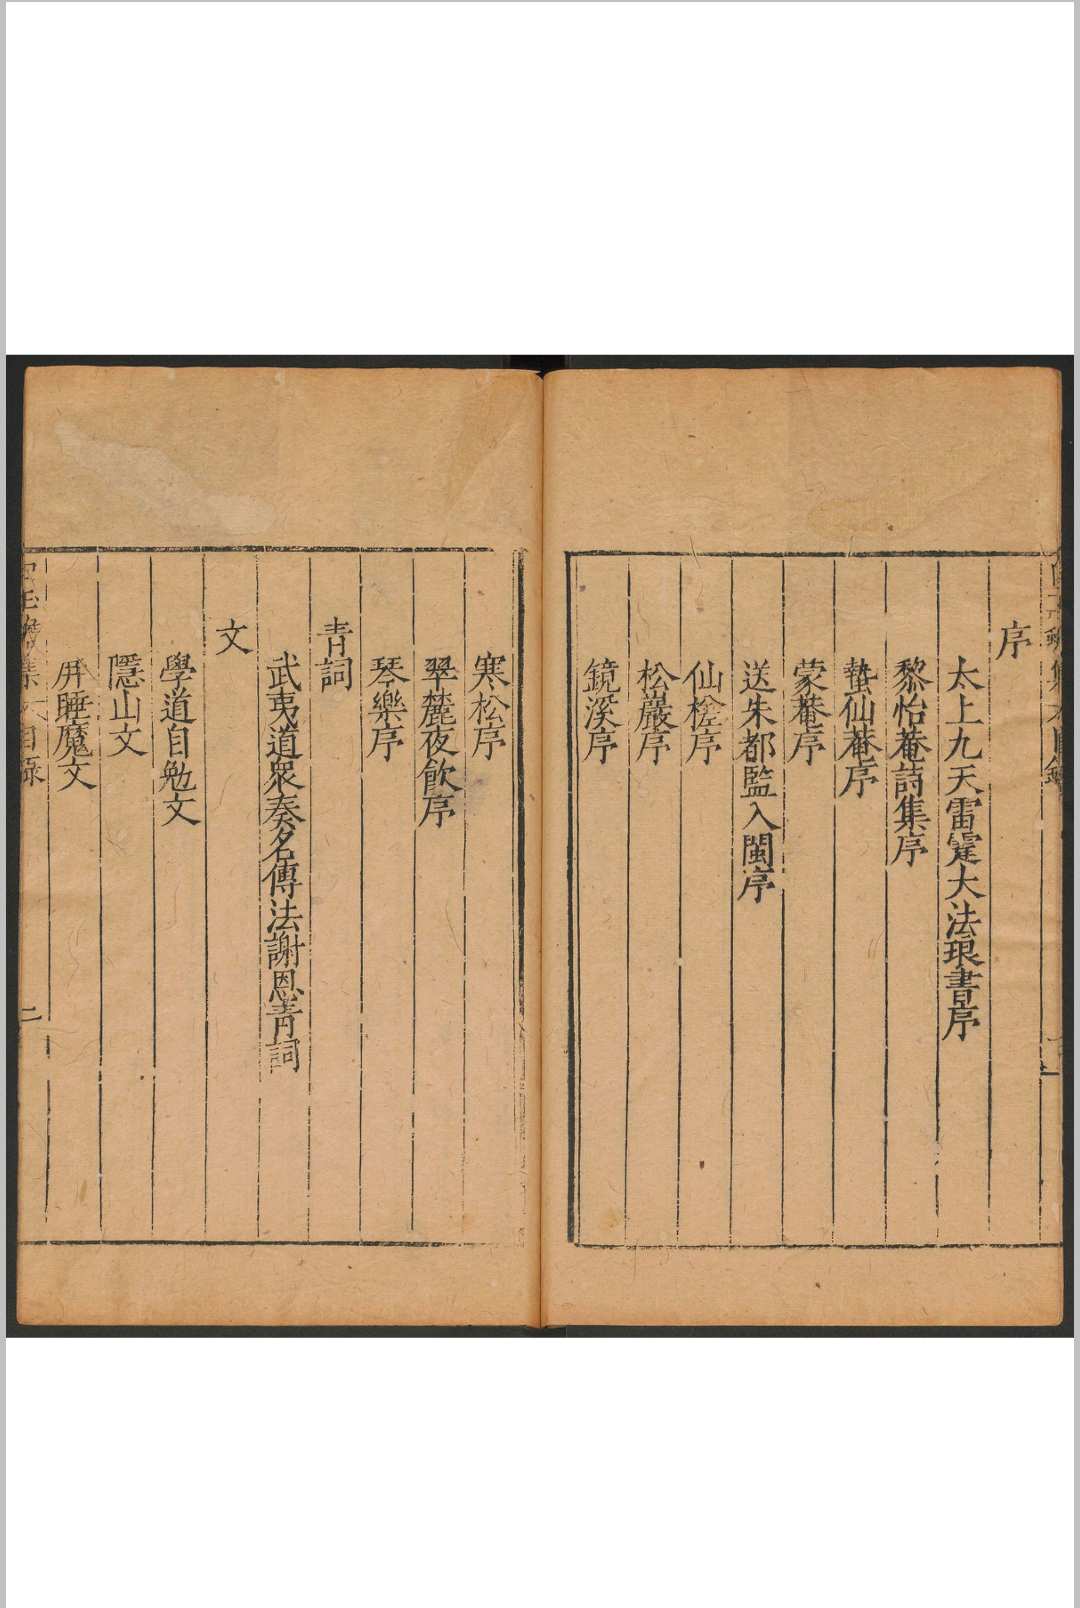 序
太上九天雷霆大法琅書序
黎怡菴詩集序
蟄仙菴序
蒙菴序
送朱都監入閩序
仙槎序
松巖序
鏡溪序
寒松序
翠麓夜飲序
琴樂序
青詞
武夷道衆奏名傳法謝恩青詞
文
學道自勉文
隱山文
屏睡魔文
集六目錄
二